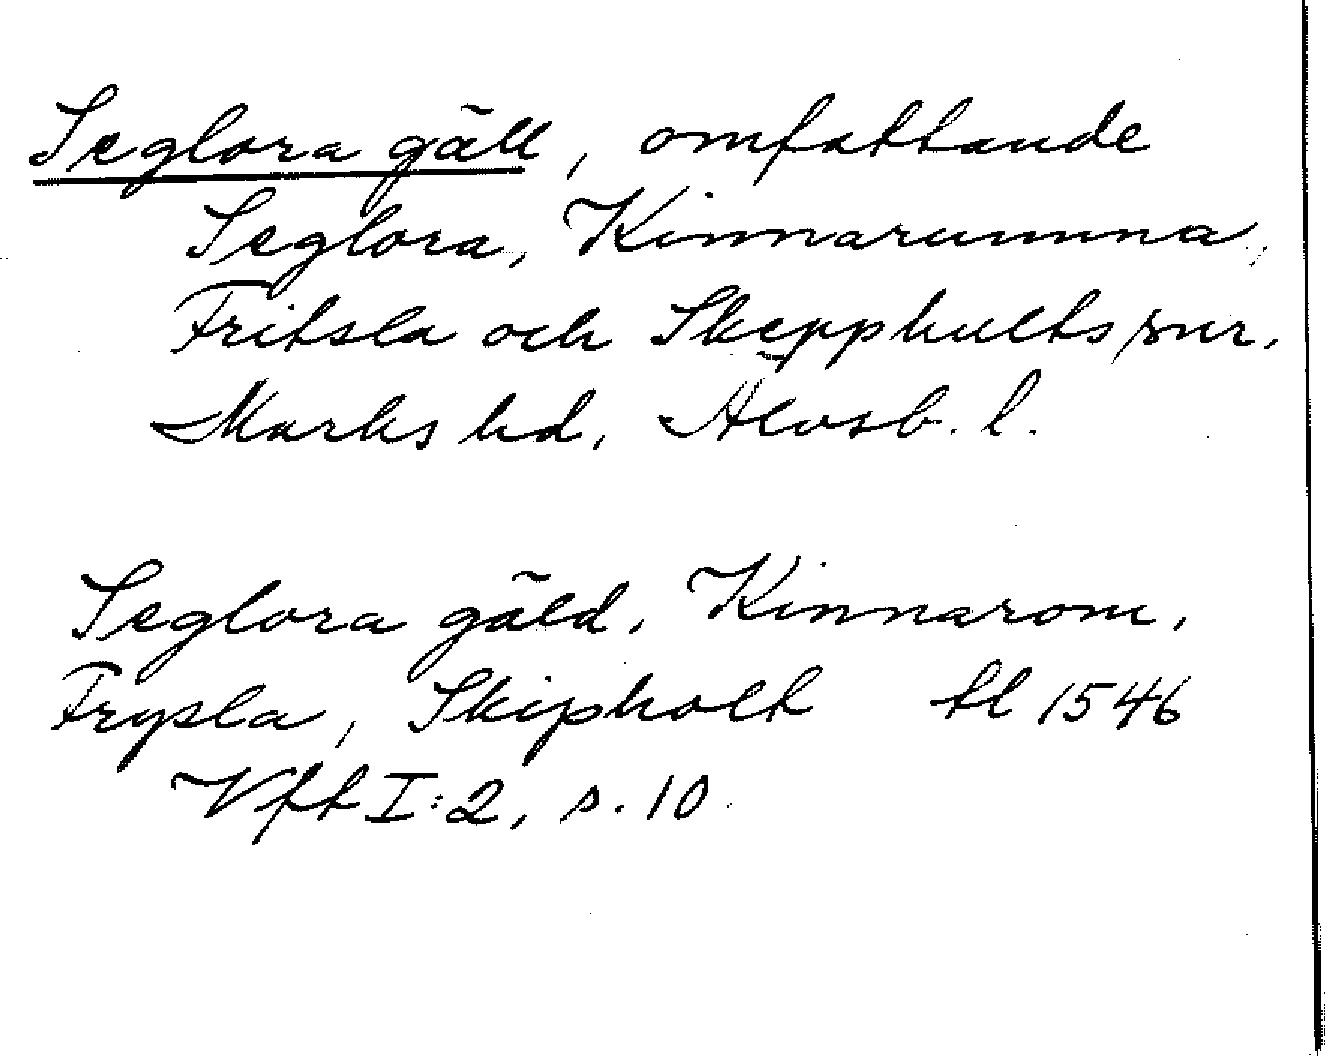 Seglora gäll, omfattande
Seglora, Kinnarumma,
Fritsla och Skepphults snr.
Marks hd, Älvsb. l.
Seglora gäld, Kinnarom,
Frysla, Skipholt tl 1546
Vfft I:2, s. 10